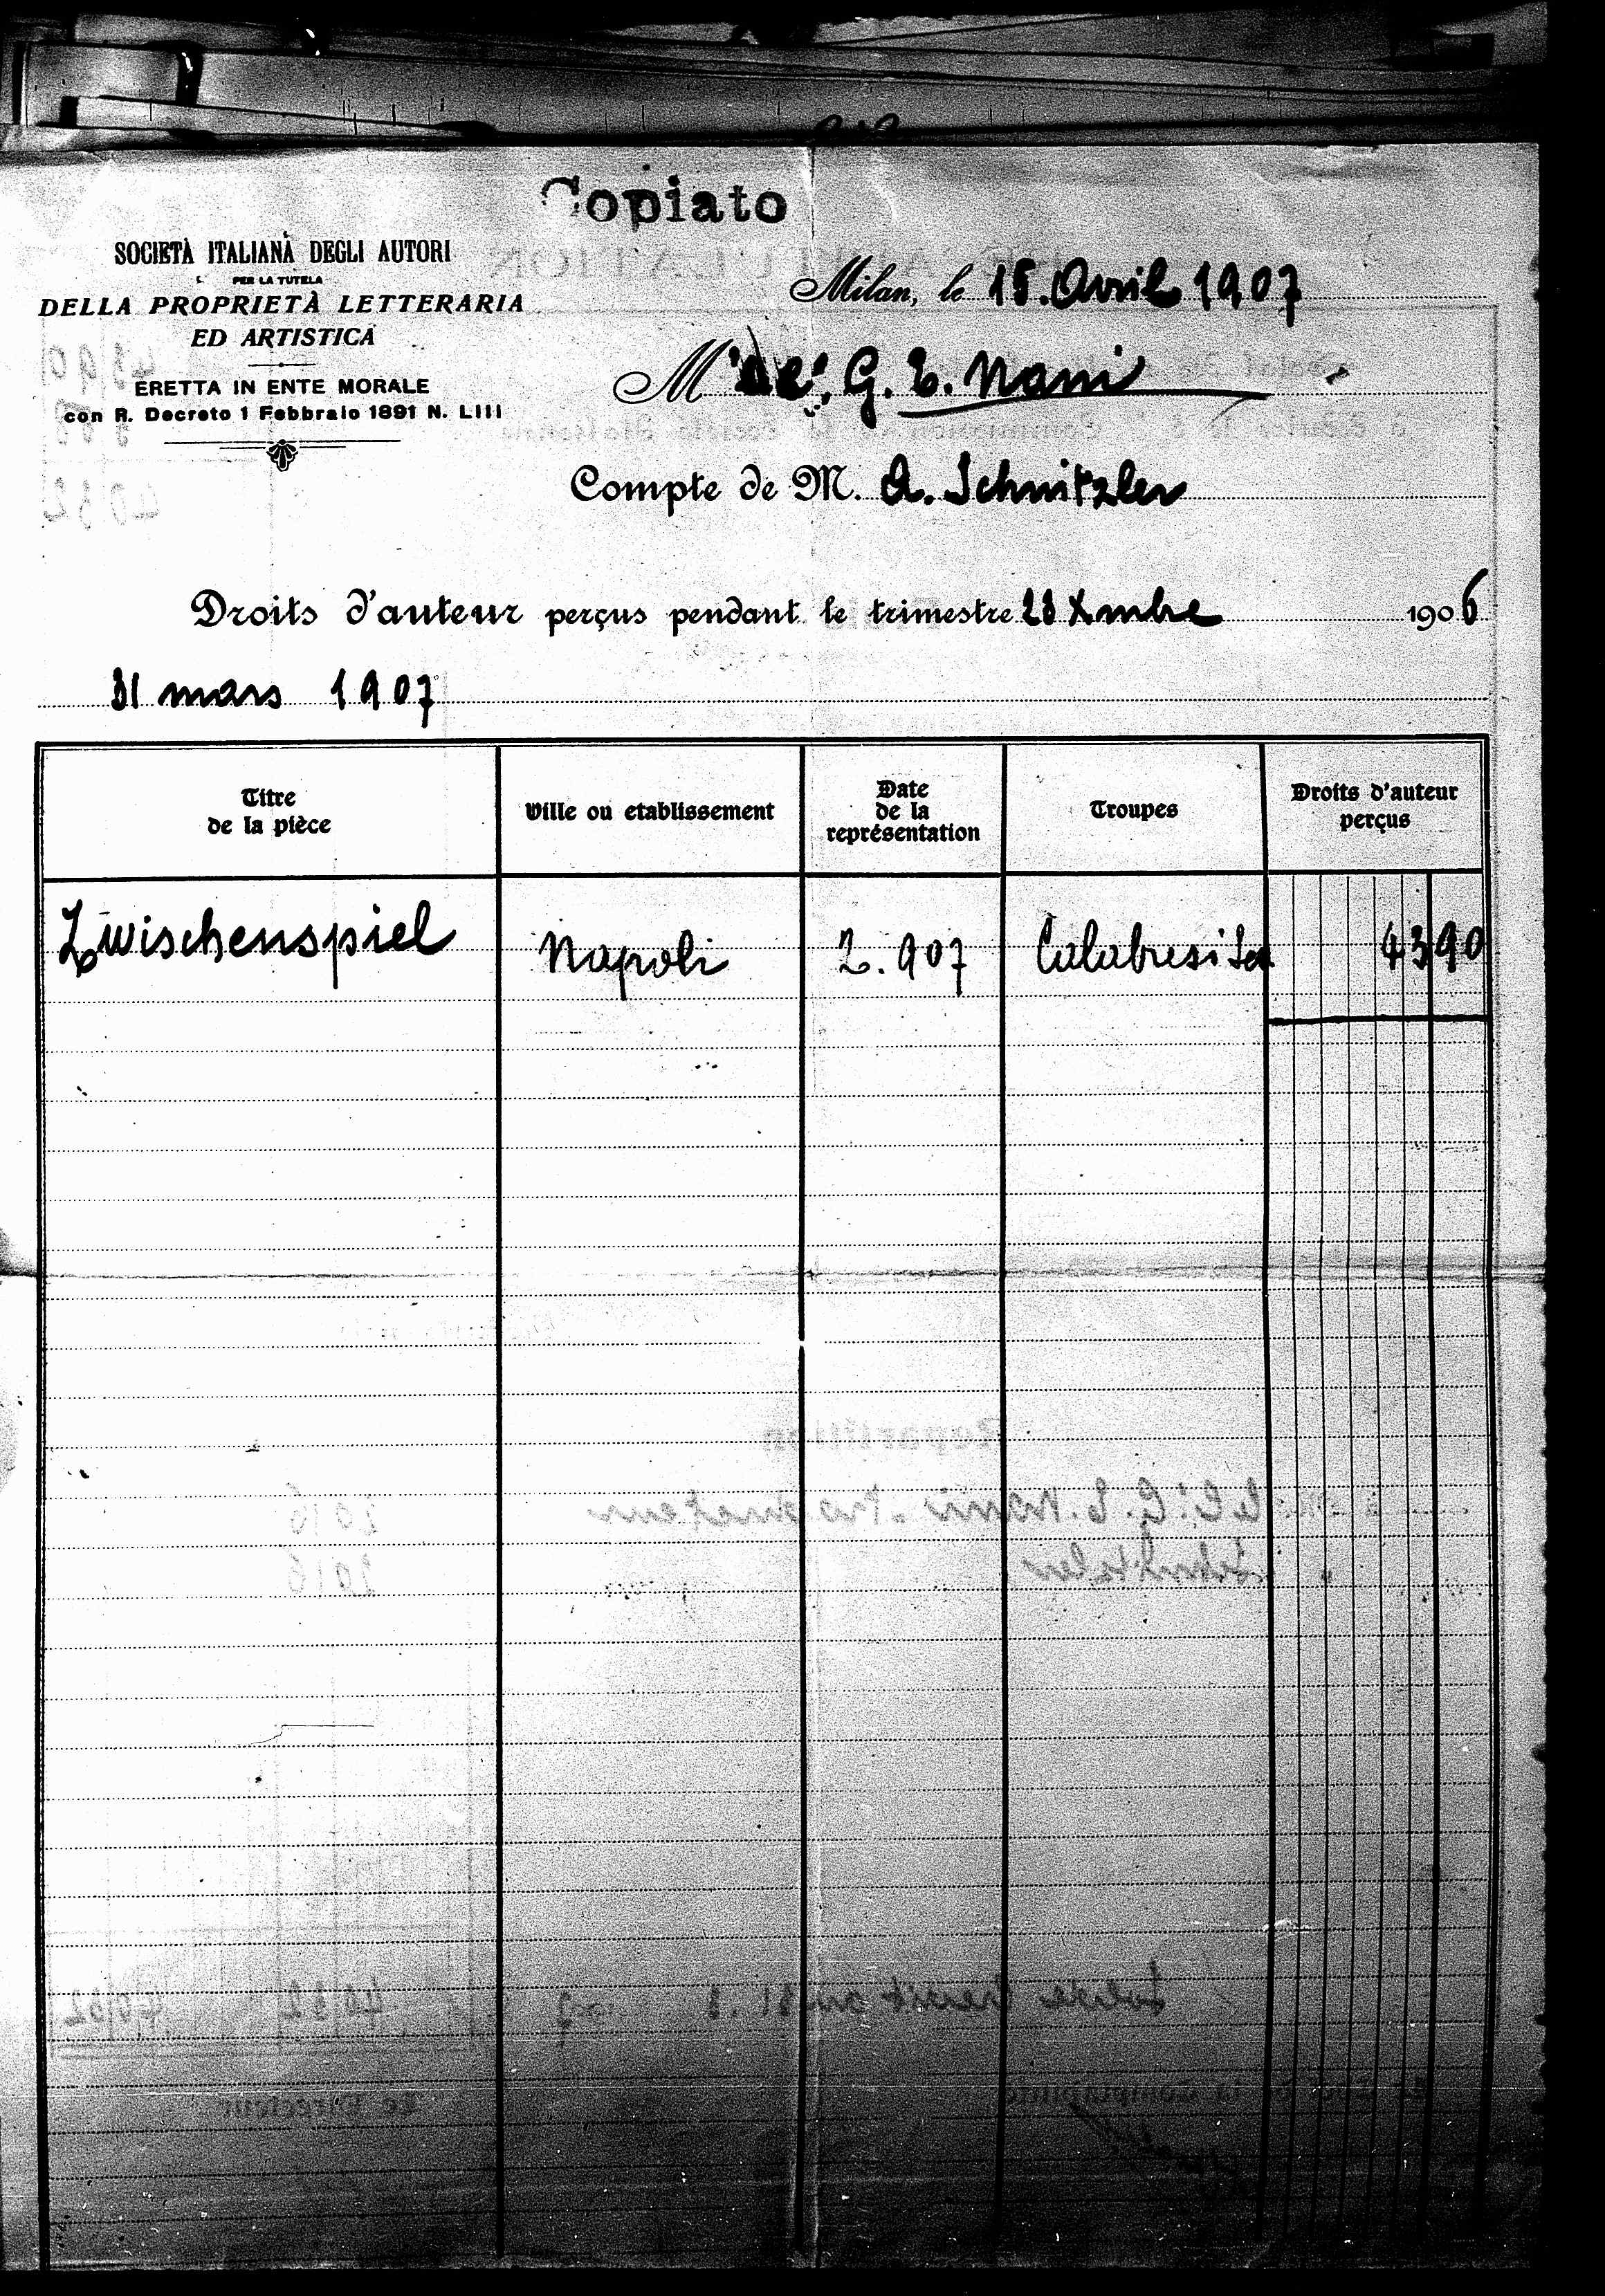 Copiato
SOCIETÀ ITALIANA DEGLI AUTORI
PER LA TUTELA
DELLA PROPRIETÀ LETTERARIA
ED ARTISTICA
ERETTA IN ENTE MORALE
con R. Decreto 1 Febbraio 1891 N. LIII
Milan, le 15. Avril 1907
M G. E. Nani
Compte de M. A. Schnitzler
Droits d'auteur perçus pendant le trimestre 23 Xmbre 1906
31 mars 1907
Titre de la pièce
Ville ou etablissement
Date de la représentation
Troupes
Droits d'auteur perçus
Zwischenspiel Napoli 2.907 Calabresi 43 90